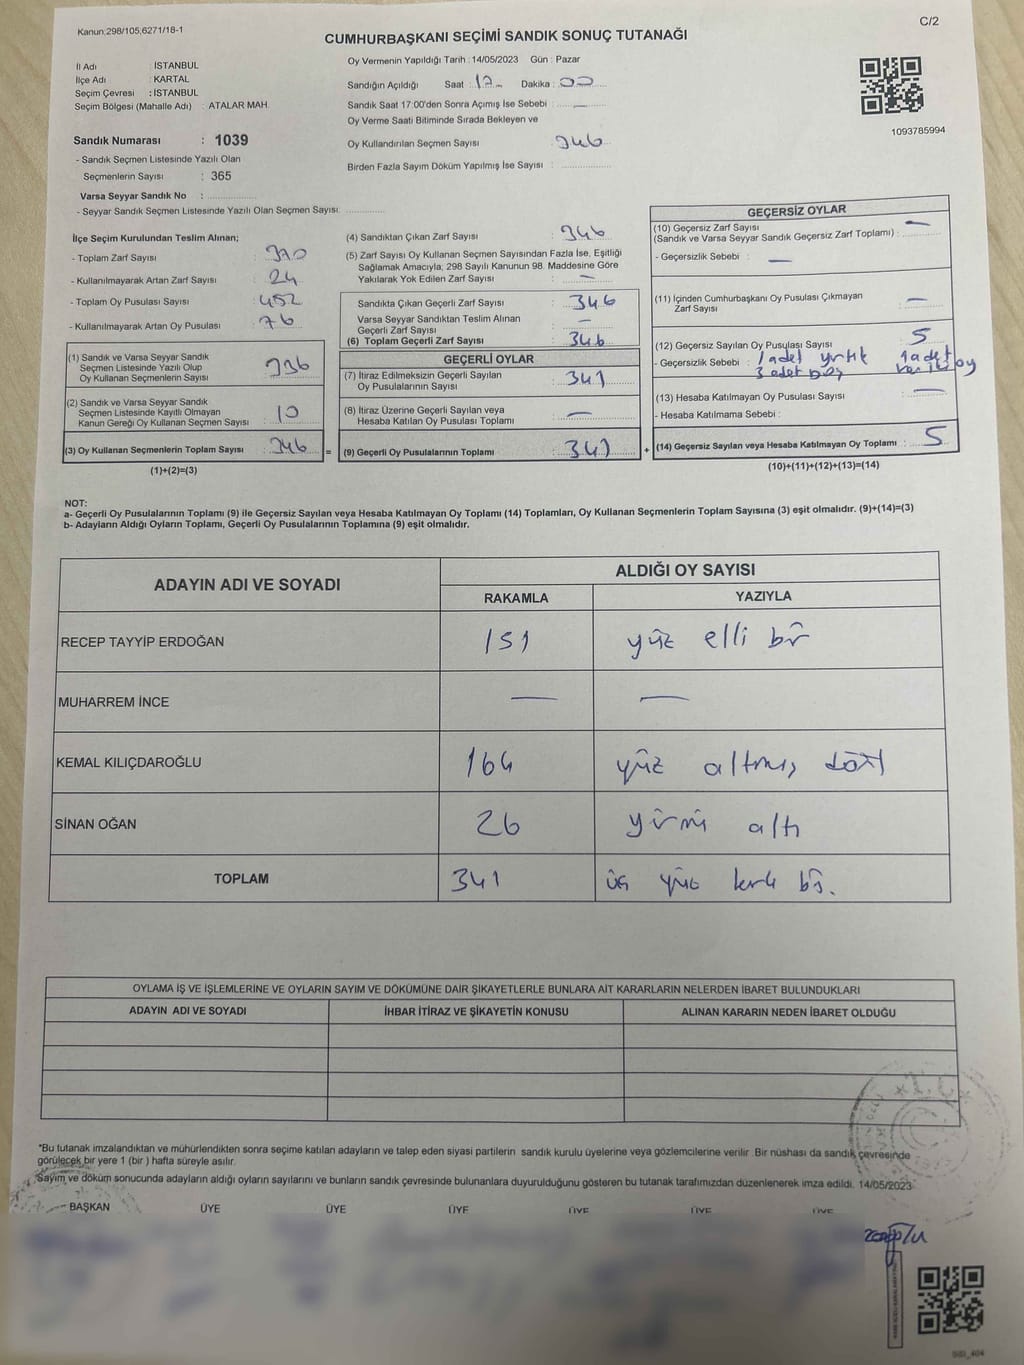 Kanun;298/105;6271/18-1
C/2
CUMHURBAŞKANI SEÇİMİ SANDIK SONUÇ TUTANAĞI
İl Adı : İSTANBUL
İlçe Adı : KARTAL
Seçim Çevresi : İSTANBUL
Seçim Bölgesi (Mahalle Adı) : ATALAR MAH.
Sandık Numarası : 1039
- Sandık Seçmen Listesinde Yazılı Olan
Seçmenlerin Sayısı : 365
Varsa Seyyar Sandık No :
- Seyyar Sandık Seçmen Listesinde Yazılı Olan Seçmen Sayısı:
Oy Vermenin Yapıldığı Tarih : 14/05/2023 Gün : Pazar
Sandığın Açıldığı Saat : 17 Dakika : 00
Sandık Saat 17:00'den Sonra Açımış İse Sebebi : —
Oy Verme Saati Bitiminde Sırada Bekleyen ve
Oy Kullandırılan Seçmen Sayısı : 346
Birden Fazla Sayım Döküm Yapılmış İse Sayısı :
1093785994
İlçe Seçim Kurulundan Teslim Alınan;
- Toplam Zarf Sayısı : 370
- Kullanılmayarak Artan Zarf Sayısı : 24
- Toplam Oy Pusulası Sayısı : 452
- Kullanılmayarak Artan Oy Pusulası : 76
(1) Sandık ve Varsa Seyyar Sandık
Seçmen Listesinde Yazılı Olup
Oy Kullanan Seçmenlerin Sayısı : 336
(2) Sandık ve Varsa Seyyar Sandık
Seçmen Listesinde Kayıtlı Olmayan
Kanun Gereği Oy Kullanan Seçmen Sayısı : 10
(3) Oy Kullanan Seçmenlerin Toplam Sayısı : 346
(1)+(2)=(3)
(4) Sandıktan Çıkan Zarf Sayısı : 346
(5) Zarf Sayısı Oy Kullanan Seçmen Sayısından Fazla İse, Eşitliği
Sağlamak Amacıyla; 298 Sayılı Kanunun 98. Maddesine Göre
Yakılarak Yok Edilen Zarf Sayısı : —
Sandıkta Çıkan Geçerli Zarf Sayısı : 346
Varsa Seyyar Sandıktan Teslim Alınan
Geçerli Zarf Sayısı : —
(6) Toplam Geçerli Zarf Sayısı : 346
GEÇERLİ OYLAR
(7) İtiraz Edilmeksizin Geçerli Sayılan
Oy Pusulalarının Sayısı : 341
(8) İtiraz Üzerine Geçerli Sayılan veya
Hesaba Katılan Oy Pusulası Toplamı : —
= (9) Geçerli Oy Pusulalarının Toplamı : 341
GEÇERSİZ OYLAR
(10) Geçersiz Zarf Sayısı —
(Sandık ve Varsa Seyyar Sandık Geçersiz Zarf Toplamı) :
- Geçersizlik Sebebi : —
(11) İçinden Cumhurbaşkanı Oy Pusulası Çıkmayan
Zarf Sayısı : —
(12) Geçersiz Sayılan Oy Pusulası Sayısı : 5
- Geçersizlik Sebebi : 1 adet yırtık 1 adet
3 adet boş oy
(13) Hesaba Katılmayan Oy Pusulası Sayısı : —
- Hesaba Katılmama Sebebi :
+ (14) Geçersiz Sayılan veya Hesaba Katılmayan Oy Toplamı : 5
(10)+(11)+(12)+(13)=(14)
NOT:
a- Geçerli Oy Pusulalarının Toplamı (9) ile Geçersiz Sayılan veya Hesaba Katılmayan Oy Toplamı (14) Toplamları, Oy Kullanan Seçmenlerin Toplam Sayısına (3) eşit olmalıdır. (9)+(14)=(3)
b- Adayların Aldığı Oyların Toplamı, Geçerli Oy Pusulalarının Toplamına (9) eşit olmalıdır.
ADAYIN ADI VE SOYADI ALDIĞI OY SAYISI
RAKAMLA YAZIYLA
RECEP TAYYİP ERDOĞAN 151 yüz elli bir
MUHARREM İNCE — —
KEMAL KILIÇDAROĞLU 164 yüz altmış dört
SİNAN OĞAN 26 yirmi altı
TOPLAM 341 üç yüz kırk bir.
OYLAMA İŞ VE İŞLEMLERİNE VE OYLARIN SAYIM VE DÖKÜMÜNE DAİR ŞİKAYETLERLE BUNLARA AİT KARARLARIN NELERDEN İBARET BULUNDUKLARI
ADAYIN ADI VE SOYADI İHBAR İTİRAZ VE ŞİKAYETİN KONUSU ALINAN KARARIN NEDEN İBARET OLDUĞU
*Bu tutanak imzalandıktan ve mühürlendikten sonra seçime katılan adayların ve talep eden siyasi partilerin sandık kurulu üyelerine veya gözlemcilerine verilir. Bir nüshası da sandık çevresinde
görülecek bir yere 1 (bir ) hafta süreyle asılır.
Sayım ve döküm sonucunda adayların aldığı oyların sayılarını ve bunların sandık çevresinde bulunanlara duyurulduğunu gösteren bu tutanak tarafımızdan düzenlenerek imza edildi. 14/05/2023
BAŞKAN ÜYE ÜYE ÜYE ÜYE ÜYE ÜYE